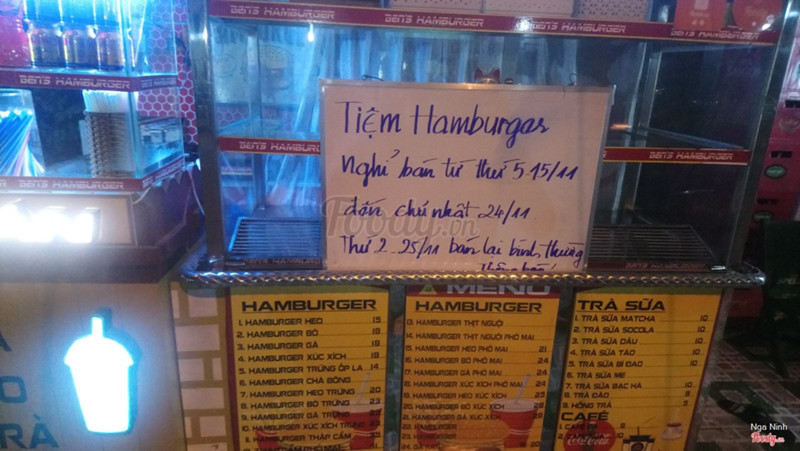 BEITS HAMBURGER
BEITS HAMBURGER
BEITS HAMBURGER
BEITS HAMBURGER
BEITS HAMBURGER
BEITS HAMBURGER
BEITS HAMBURGER
Tiệm Hamburgas
Nghỉ bán từ thứ 5 15/11
đến chủ nhật 24/11
Thứ 2 25/11 bán lại bình thường
Foody.vn
MENU
HAMBURGER
1. HAMBURGER HEO 15
2. HAMBURGER BÒ 18
3. HAMBURGER GÀ 18
4. HAMBURGER XÚC XÍCH 18
5. HAMBURGER TRỨNG ỐP LA 14
6. HAMBURGER CHÀ BÔNG
7. HAMBURGER HEO TRỨNG 20
8. HAMBURGER BÒ TRỨNG 23
9. HAMBURGER GÀ TRỨNG
10. HAMBURGER XÚC XÍCH TRỨNG
11. HAMBURGER THẬP CẨM
HAMBURGER
13. HAMBURGER THỊT NGUỘI
14. HAMBURGER THỊT NGUỘI PHÔ MAI
15. HAMBURGER HEO PHÔ MAI 21
16. HAMBURGER BÒ PHÔ MAI 24
17. HAMBURGER GÀ PHÔ MAI 24
18. HAMBURGER XÚC XÍCH PHÔ MAI 24
19. HAMBURGER HEO XÚC XÍCH 25
20. HAMBURGER BÒ XÚC XÍCH
21. HAMBURGER GÀ XÚC XÍCH
TRÀ SỮA
1. TRÀ SỮA MATCHA 10
2. TRÀ SỮA SOCOLA 10
3. TRÀ SỮA DÂU 10
4. TRÀ SỮA TÁO 10
5. TRÀ SỮA BÍ ĐAO 10
6. TRÀ SỮA ME 10
7. TRÀ SỮA BẠC HÀ 10
8. TRÀ ĐÀO 10
9. HỒNG TRÀ
CAFÉ
Coca-Cola
TRÀ
Nga Ninh
Foody.vn